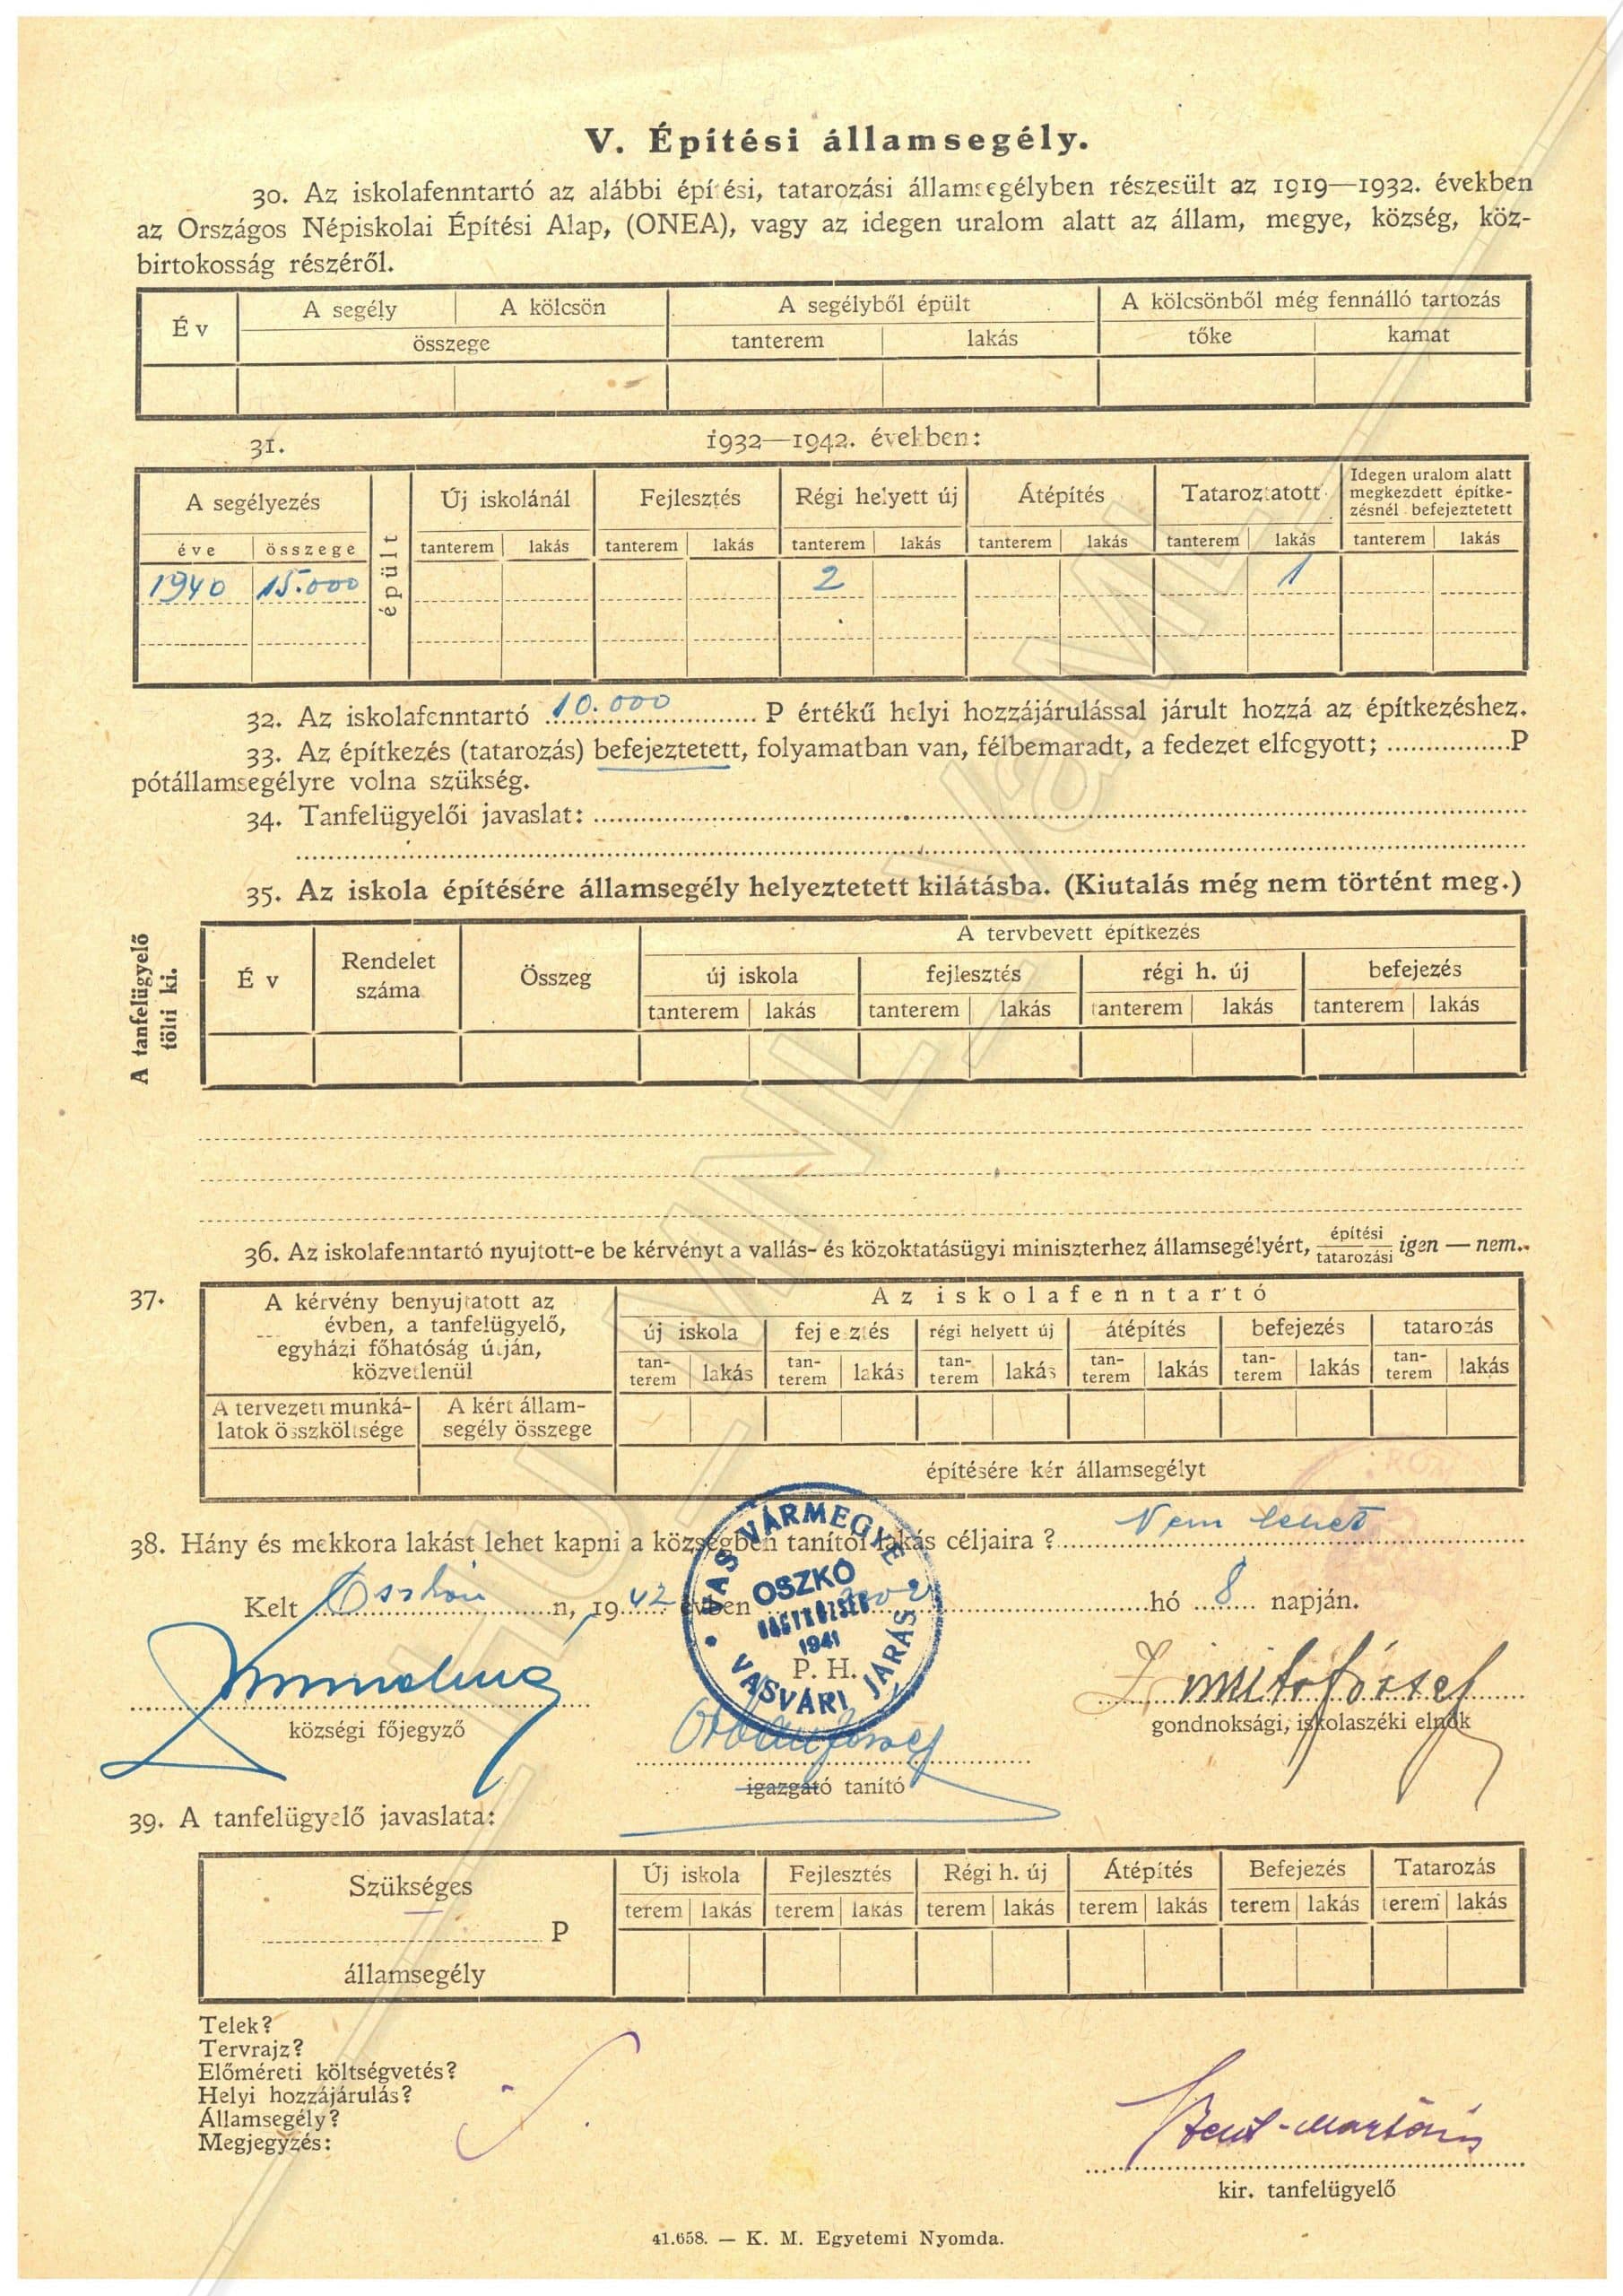 V. Építési államsegély.
30. Az iskolafenntartó az alábbi építési, tatarozási államsegélyben részesült az 1919—1932. években
az Országos Népiskolai Építési Alap, (ONEA), vagy az idegen uralom alatt az állam, megye, község, köz-
birtokosság részéről.
Év A segély A kölcsön A segélyből épült A kölcsönből még fennálló tartozás
összege tanterem lakás tőke kamat
31. 1932—1942. években:
A segélyezés épült Új iskolánál Fejlesztés Régi helyett új Átépítés Tataroztatott Idegen uralom alatt
megkezdett építke-
zésnél befejeztetett
éve összege tanterem lakás tanterem lakás tanterem lakás tanterem lakás tanterem lakás tanterem lakás
1940 15.000 2 1
32. Az iskolafenntartó 10.000 P értékű helyi hozzájárulással járult hozzá az építkezéshez.
33. Az építkezés (tatarozás) befejeztetett, folyamatban van, félbemaradt, a fedezet elfogyott; P
pótállamsegélyre volna szükség.
34. Tanfelügyelői javaslat:
35. Az iskola építésére államsegély helyeztetett kilátásba. (Kiutalás még nem történt meg.)
A tanfelügyelő
tölti ki.
Év Rendelet száma Összeg A tervbevett építkezés
új iskola fejlesztés régi h. új befejezés
tanterem lakás tanterem lakás tanterem lakás tanterem lakás
36. Az iskolafenntartó nyujtott-e be kérvényt a vallás- és közoktatásügyi miniszterhez államsegélyért, építési tatarozási igen — nem.
37. A kérvény benyujtatott az
évben, a tanfelügyelő,
egyházi főhatóság útján,
közvetlenül
Az iskolafenntartó
új iskola fej e ztés régi helyett új átépítés befejezés tatarozás
tan-
terem lakás tan-
terem lakás tan-
terem lakás tan-
terem lakás tan-
terem lakás tan-
terem lakás
A tervezett munká-
latok összköltsége
A kért állam-
segély összege
építésére kér államsegélyt
ROM
38. Hány és mekkora lakást lehet kapni a községben tanítói lakás céljaira? Nem lehet
Kelt Oszkón, 1942 évben hó 8 napján.
VAS VÁRMEGYE
OSZKÓ
NAGYKÖZSÉG
1941
VASVÁRI JÁRÁS
P. H.
községi főjegyző
Orbán József
igazgató tanító
József
gondnoksági, iskolaszéki elnök
39. A tanfelügyelő javaslata:
Szükséges
P
államsegély
Új iskola Fejlesztés Régi h. új Átépítés Befejezés Tatarozás
terem lakás terem lakás terem lakás terem lakás terem lakás terem lakás
Telek?
Tervrajz?
Előméreti költségvetés?
Helyi hozzájárulás?
Államsegély?
Megjegyzés:
Szent-Mártoni
kir. tanfelügyelő
41.658. — K. M. Egyetemi Nyomda.
HU_MNL_VaML